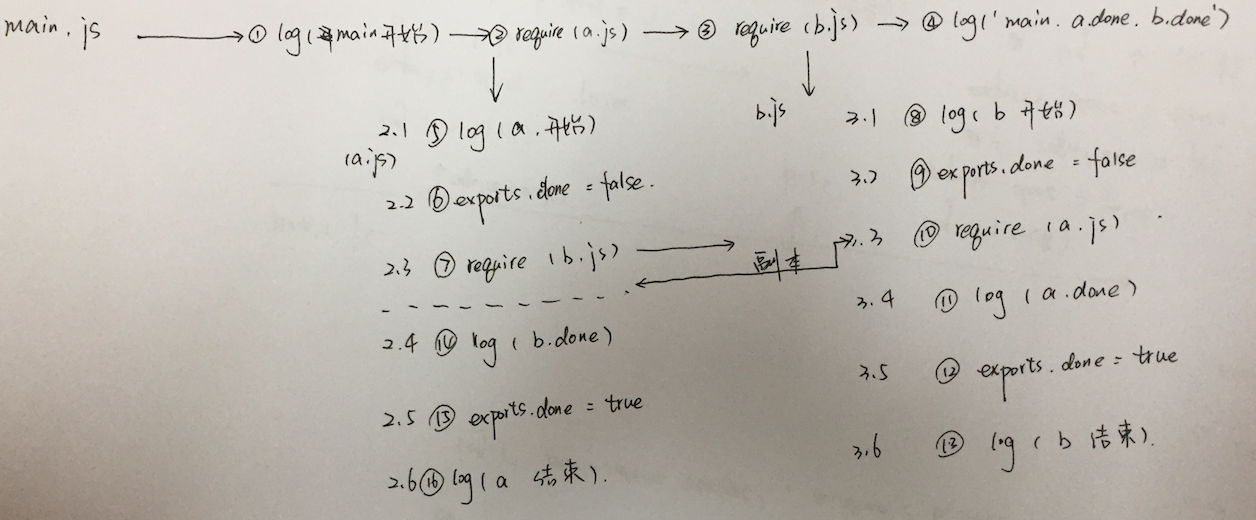 main.js → ① log(main开始) → ② require (a.js) → ③ require (b.js) → ④ log('main. a.done. b.done')
2.1 ⑤ log (a.开始)
(a.js)
2.2 ⑥ exports.done = false.
2.3 ⑦ require (b.js)
副本
2.4 ⑭ log (b.done)
2.5 ⑮ exports.done = true
2.6 ⑯ log (a 结束).
b.js
3.1 ⑧ log( b 开始)
3.2 ⑨ exports.done = false
3.3 ⑩ require (a.js)
3.4 ⑪ log (a.done)
3.5 ⑫ exports.done = true
3.6 ⑬ log ( b 结束).